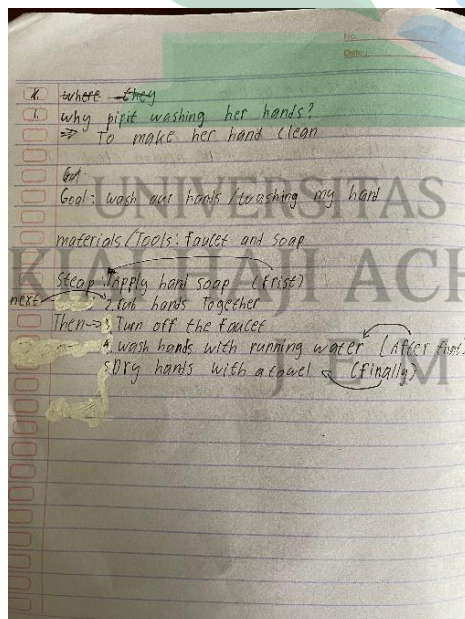 No:
Date:
X. where they
1. why pipit washing her hands?
⇒ To make her hand clean
Goal: wash our hands / washing my hand
materials/Tools: faucet and soap
Steap: 1. Apply hand soap (frist)
next → 2. rub hands Together
Then → 3. Turn off the faucet
4. wash hands with running water (After that)
5. Dry hands with a towel (finally)
UNIVERSITAS
KIAI HAJI ACH
JEM